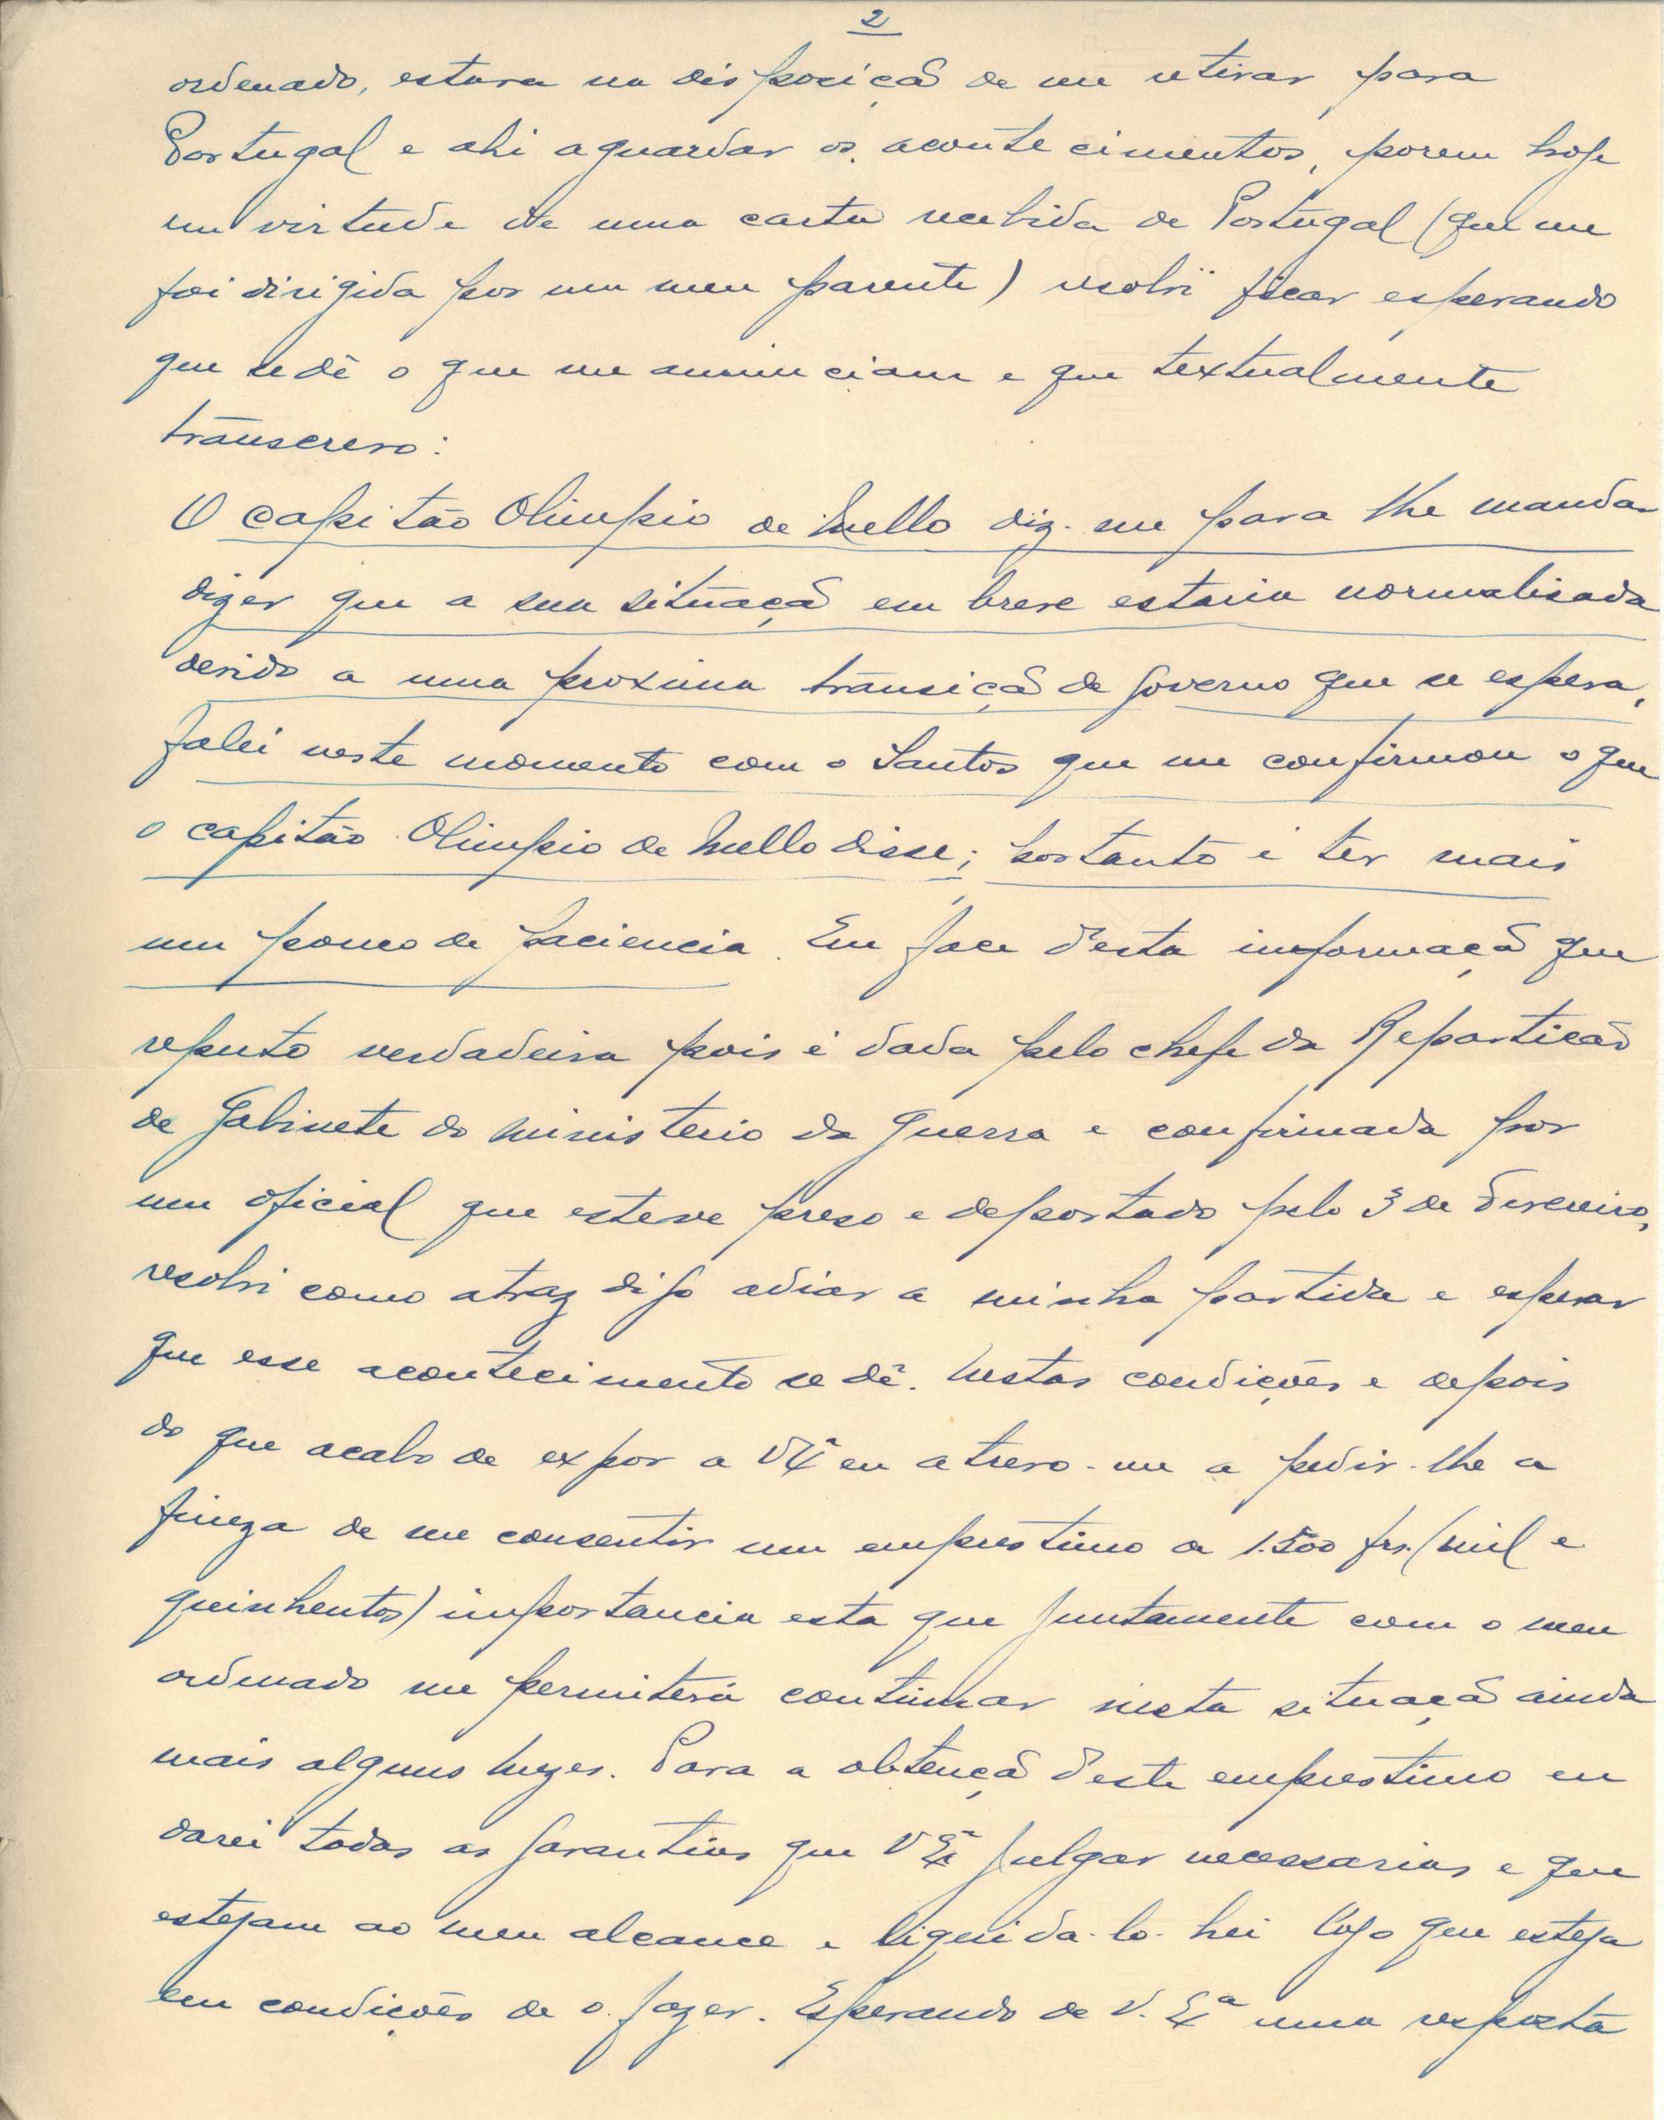 2
ordenado, estava na disposiçã de me retirar para
Portugal e ahi aguardar os acontecimentos, porem hoje
em virtude de uma carta recebida de Portugal (que me
foi dirigida por um meu parente) resolvi ficar esperando
que se dê o que me anunciam e que textualmente
transcrevo:
O capitão Olimpio de Mello diz-me para lhe mandar
dizer que a sua situaçã em breve estaria normalisada
devido a uma proxima transiçã de governo que se espera,
falei neste momento com o Santos que me confirmou o que
o capitão Olimpio de Mello disse; portanto é ter mais
um pouco de paciencia. Em face d'esta informaçã que
reputo verdadeira pois é dada pelo chefe da Repartição
de Gabinete do ministerio da guerra e confirmada por
um oficial que esteve preso e deportado pelo 3 de Fevereiro,
resolvi como atraz digo adiar a minha partida e esperar
que esse acontecimento se dê. Nestas condições e depois
do que acabo de expor a V Exª eu atrevo-me a pedir-lhe a
fineza de me consentir um emprestimo de 1.500 frs. (mil e
quinhentos) importancia esta que juntamente com o meu
ordenado me permiterá continuar nesta situaçã ainda
mais alguns mezes. Para a obtençã d'este emprestimo eu
darei todas as garantias que V Exª julgar necessarias e que
estejam ao meu alcance e liquida-lo-hei logo que esteja
em condições de o fazer. Esperando de V. Exª uma resposta